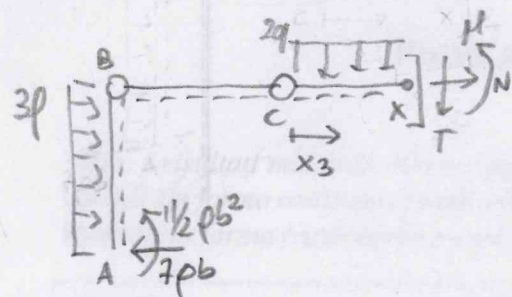 2q
M
B
3p
N
C
X
T
X3
11/2 pb²
A
7pb